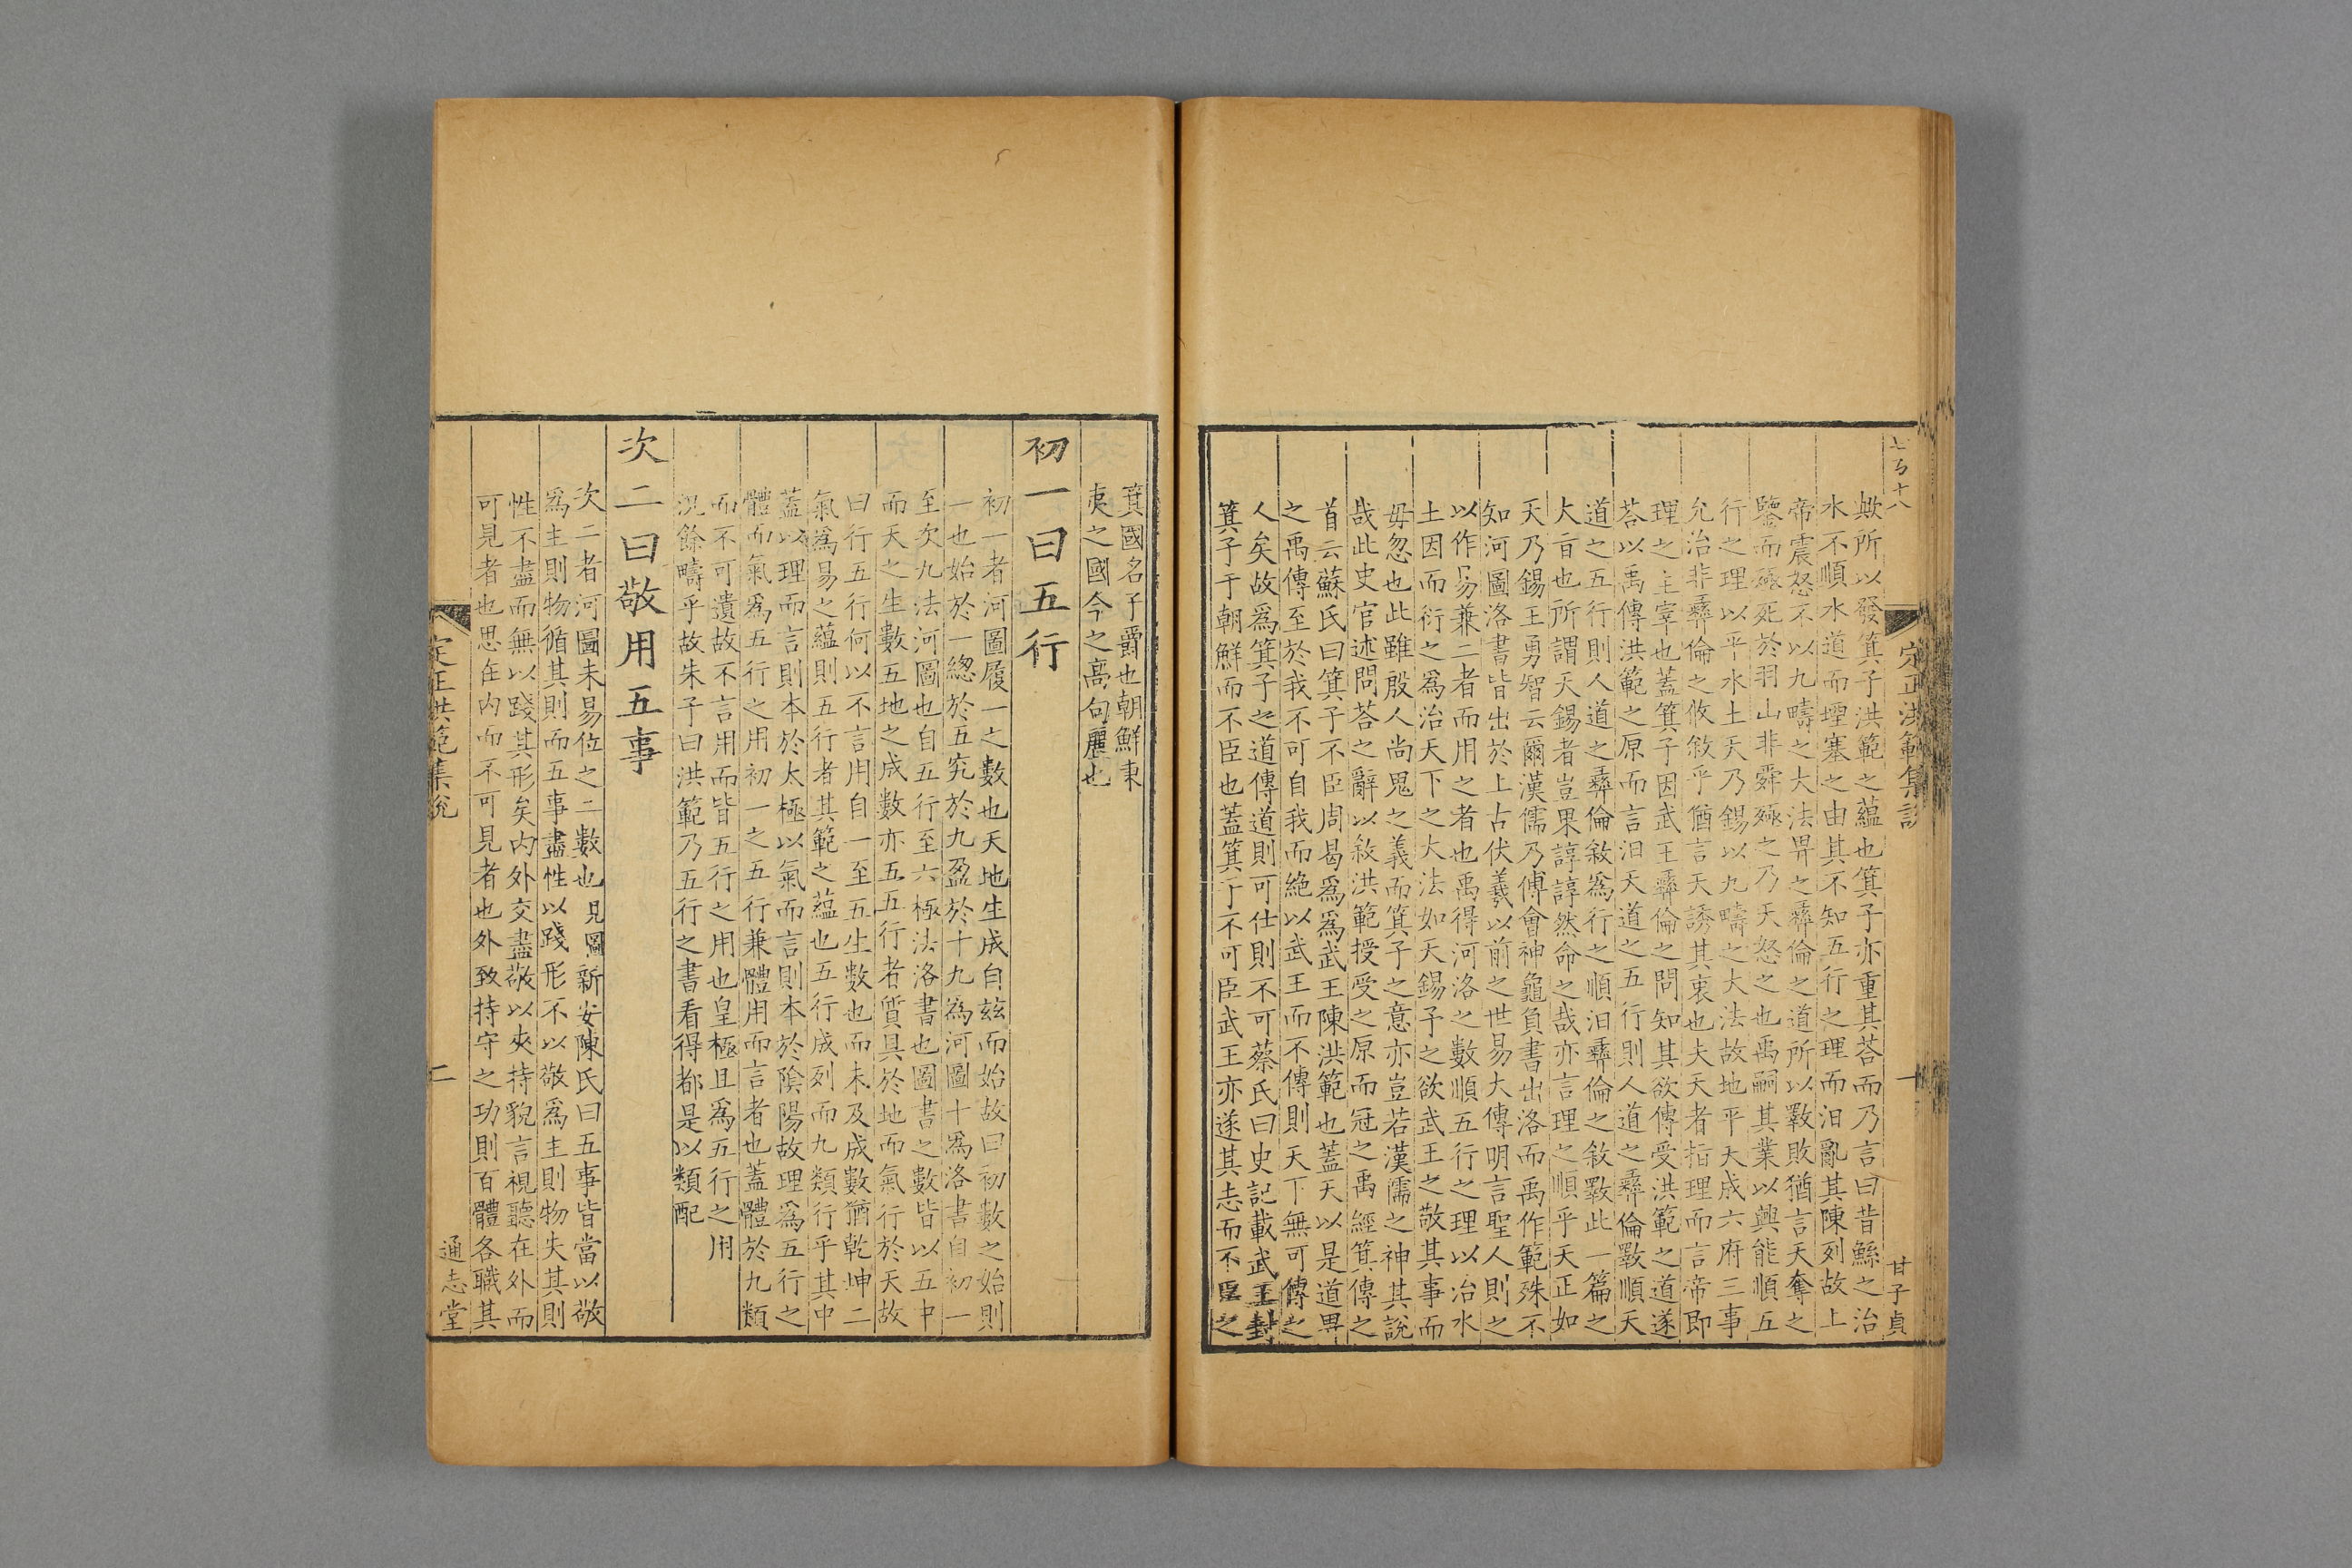 定正洪範集說
一
甘子貞
歟所以發箕子洪範之蘊也箕子亦重其荅而乃言曰昔鯀之治
水不順水道而堙塞之由其不知五行之理而汩亂其陳列故上
帝震怒不以九疇之大法畀之彞倫之道所以斁敗猶言天奪之
鑒而殛死於羽山非舜殛之乃天怒之也禹嗣其業以興能順五
行之理以平水土天乃錫以九疇之大法故地平天成六府三事
允治非彞倫之攸敘乎猶言天誘其衷也夫天者指理而言帝即
理之主宰也蓋箕子因武王彞倫之問知其欲傳受洪範之道遂
荅以禹傳洪範之原而言汩天道之五行則人道之彞倫斁順天
道之五行則人道之彞倫敘爲行之順汩彞倫之敘斁此一篇之
大㫖也所謂天錫者豈果諄諄然命之哉亦言理之順乎天正如
天乃錫王勇智云爾漢儒乃傅會神龜負書出洛而禹作範殊不
知河圖洛書皆出於上古伏羲以前之世易大傳明言聖人則之
以作易兼二者而用之者也禹得河洛之數順五行之理以治水
土因而衍之爲治天下之大法如天錫予之欲武王之敬其事而
毋忽也此雖殷人尚鬼之義而箕子之意亦豈若漢儒之神其說
哉此史官述問荅之辭以敘洪範授受之原而冠之禹經箕傳之
首云蘇氏曰箕子不臣周曷爲爲武王陳洪範也蓋天以是道畀
之禹傳至於我不可自我而絶以武王而不傳則天下無可傳之
人矣故爲箕子之道傳道則可仕則不可蔡氏曰史記載武王封
箕子于朝鮮而不臣也蓋箕子不可臣武王亦遂其志而不臣之
箕國名子爵也朝鮮東
夷之國今之高句麗也
初一曰五行
初一者河圖履一之數也天地生成自玆而始故曰初數之始則
一也始於一緫於五究於九盈於十九爲河圖十爲洛書自初一
至次九法河圖也自五行至六極法洛書也圖書之數皆以五中
而天之生數五地之成數亦五五行者質具於地而氣行於天故
曰行五行何以不言用自一至五生數也而未及成數猶乾坤二
氣爲易之蘊則五行者其範之蘊也五行成列而九類行乎其中
蓋以理而言則本於太極以氣而言則本於陰陽故理爲五行之
體而氣爲五行之用初一之五行兼體用而言者也蓋體於九類
而不可遺故不言用而皆五行之用也皇極且爲五行之用
況餘疇乎故朱子曰洪範乃五行之書看得都是以類配
次二曰敬用五事
次二者河圖未易位之二數也見圖新安陳氏曰五事皆當以敬
爲主則物循其則而五事盡性以踐形不以敬爲主則物失其則
性不盡而無以踐其形矣内外交盡敬以夾持貌言視聽在外而
可見者也思在内而不可見者也外致持守之功則百體各職其
定正洪範集說
二
通志堂